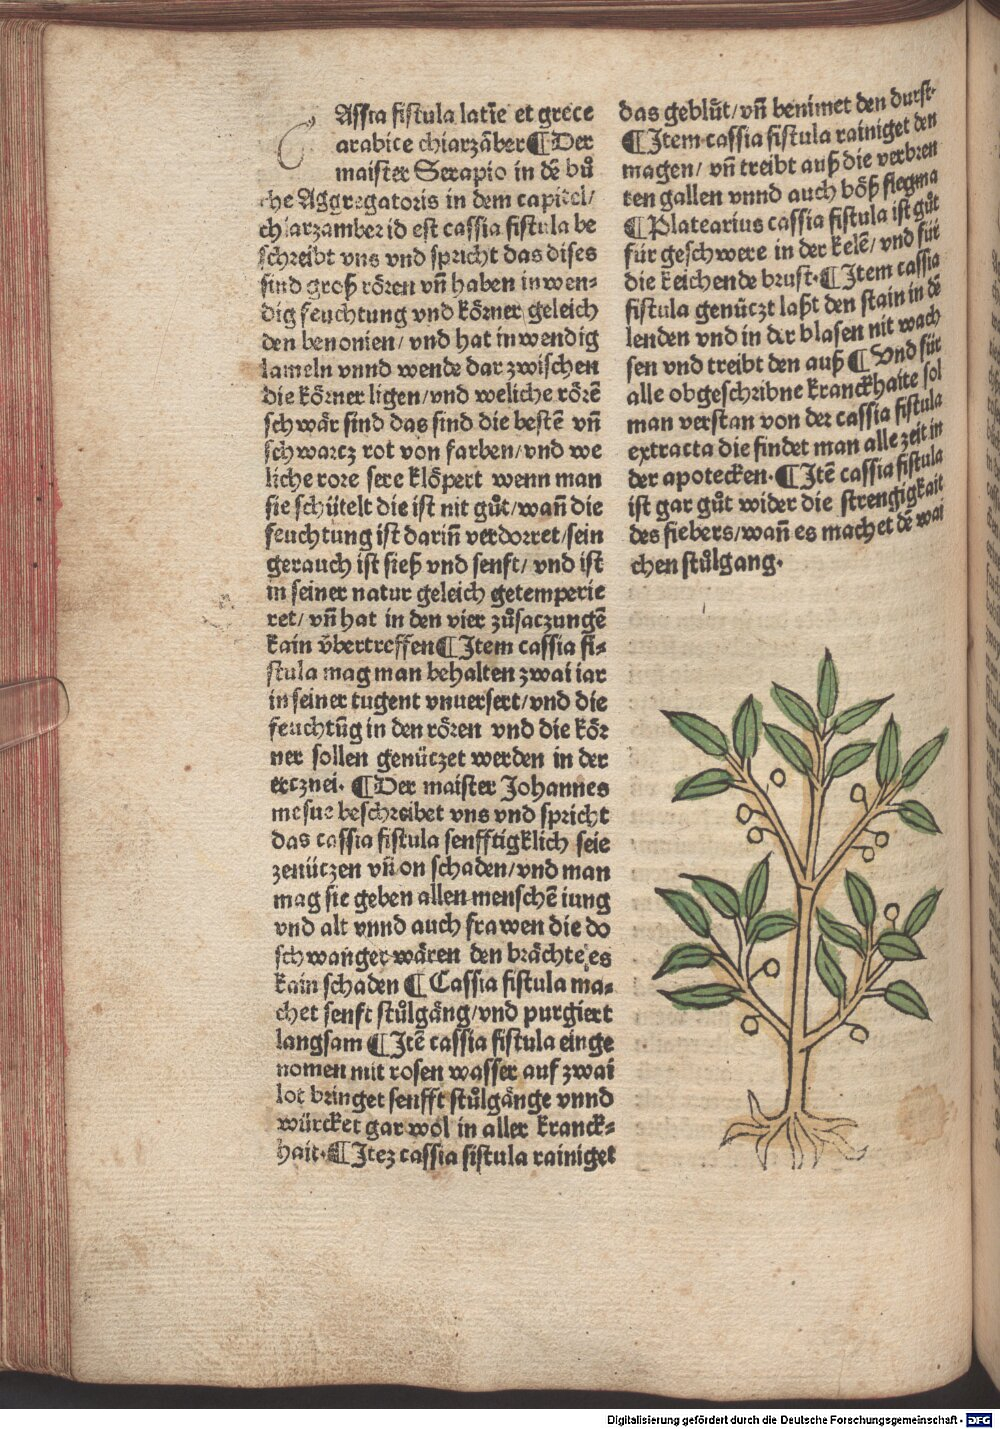 C
Assia fistula latīe et grece
arabice chiarzāber ¶ Der
maister Serapio in dē bů
che Aggregatoris in dem capitel/
chiarzamber id est cassia fistula be
schreibt vns vnd spricht das dises
sind groß rören vñ haben inwen⸗
dig feuchtung vnd körner geleich
den benonien/ vnd hat inwendig
lameln vnnd wende dar zwischen
die körner ligen/vnd weliche rörē
schwär sind das sind die bestē vñ
schwarcz rot von farben/vnd we
liche rore sere klöpert wenn man
sie schütelt die ist nit gůt/wañ die
feuchtung ist dariñ verdorret/sein
gerauch ist sieß vnd senft/ vnd ist
in seiner natur geleich getemperie
ret/ vñ hat in den vier zůsaczungē
kain v̈bertreffen ¶ Item cassia fi⸗
stula mag man behalten zwai iar
in seiner tugent vnuersert/vnd die
feuchtūg in den rören vnd die kör
ner sollen genüczet werden in der
ercznei. ¶ Der maister Johannes
mesue beschreibet vns vnd spricht
das cassia fistula senfftigklich seie
zenüczen vñ on schaden/vnd man
mag sie geben allen menschē iung
vnd alt vnnd auch frawen die do
schwanger wären den brächte es
kain schaden ¶ Cassia fistula ma⸗
chet senft stůlgäng/vnd purgiert
langsam ¶ Itē cassia fistula einge
nomen mit rosen wasser auf zwai
lot bringet senfft stůlgänge vnnd
würcket gar wol in aller kranck⸗
hait. ¶ Itez cassia fistula rainiget
das geblůt/vñ benimet den durst.
¶ Item cassia fistula rainiget den
magen/ vñ treibt auß die verbren
ten gallen vnnd auch böß flegma
¶ Platearius cassia fistula ist gůt
für geschwere in der kelē/ vnd für
die keichende brust. ¶ Item cassia
fistula genüczt laßt den stain in dē
lenden vnd in der blasen nit wach
sen vnd treibt den auß ¶ Vnd für
alle obgeschribne kranckhaite sol
man verstan von der cassia fistula
extracta die findet man alle zeit in
der apotecken. ¶ Itē cassia fistula
ist gar gůt wider die strengigkait
des fiebers/wañ es machet dē wai
chen stůlgang.
Digitalisierung gefördert durch die Deutsche Forschungsgemeinschaft - DFG